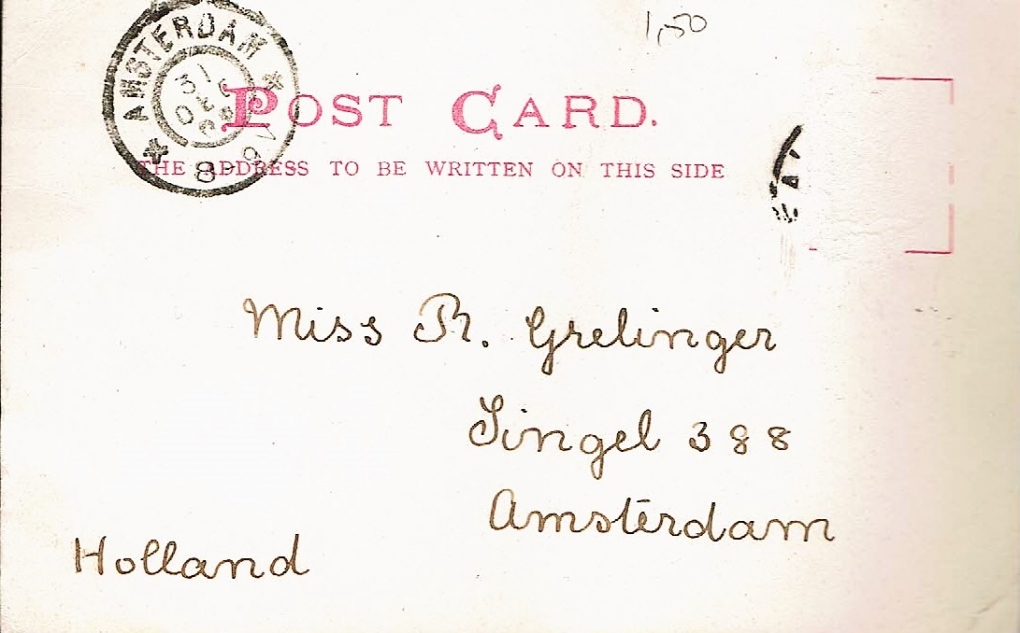 1,50
AMSTERDAM
31
DEC
8-9V
POST CARD.
THE ADDRESS TO BE WRITTEN ON THIS SIDE
Miss R. Grelinger
Singel 388
Amsterdam
Holland